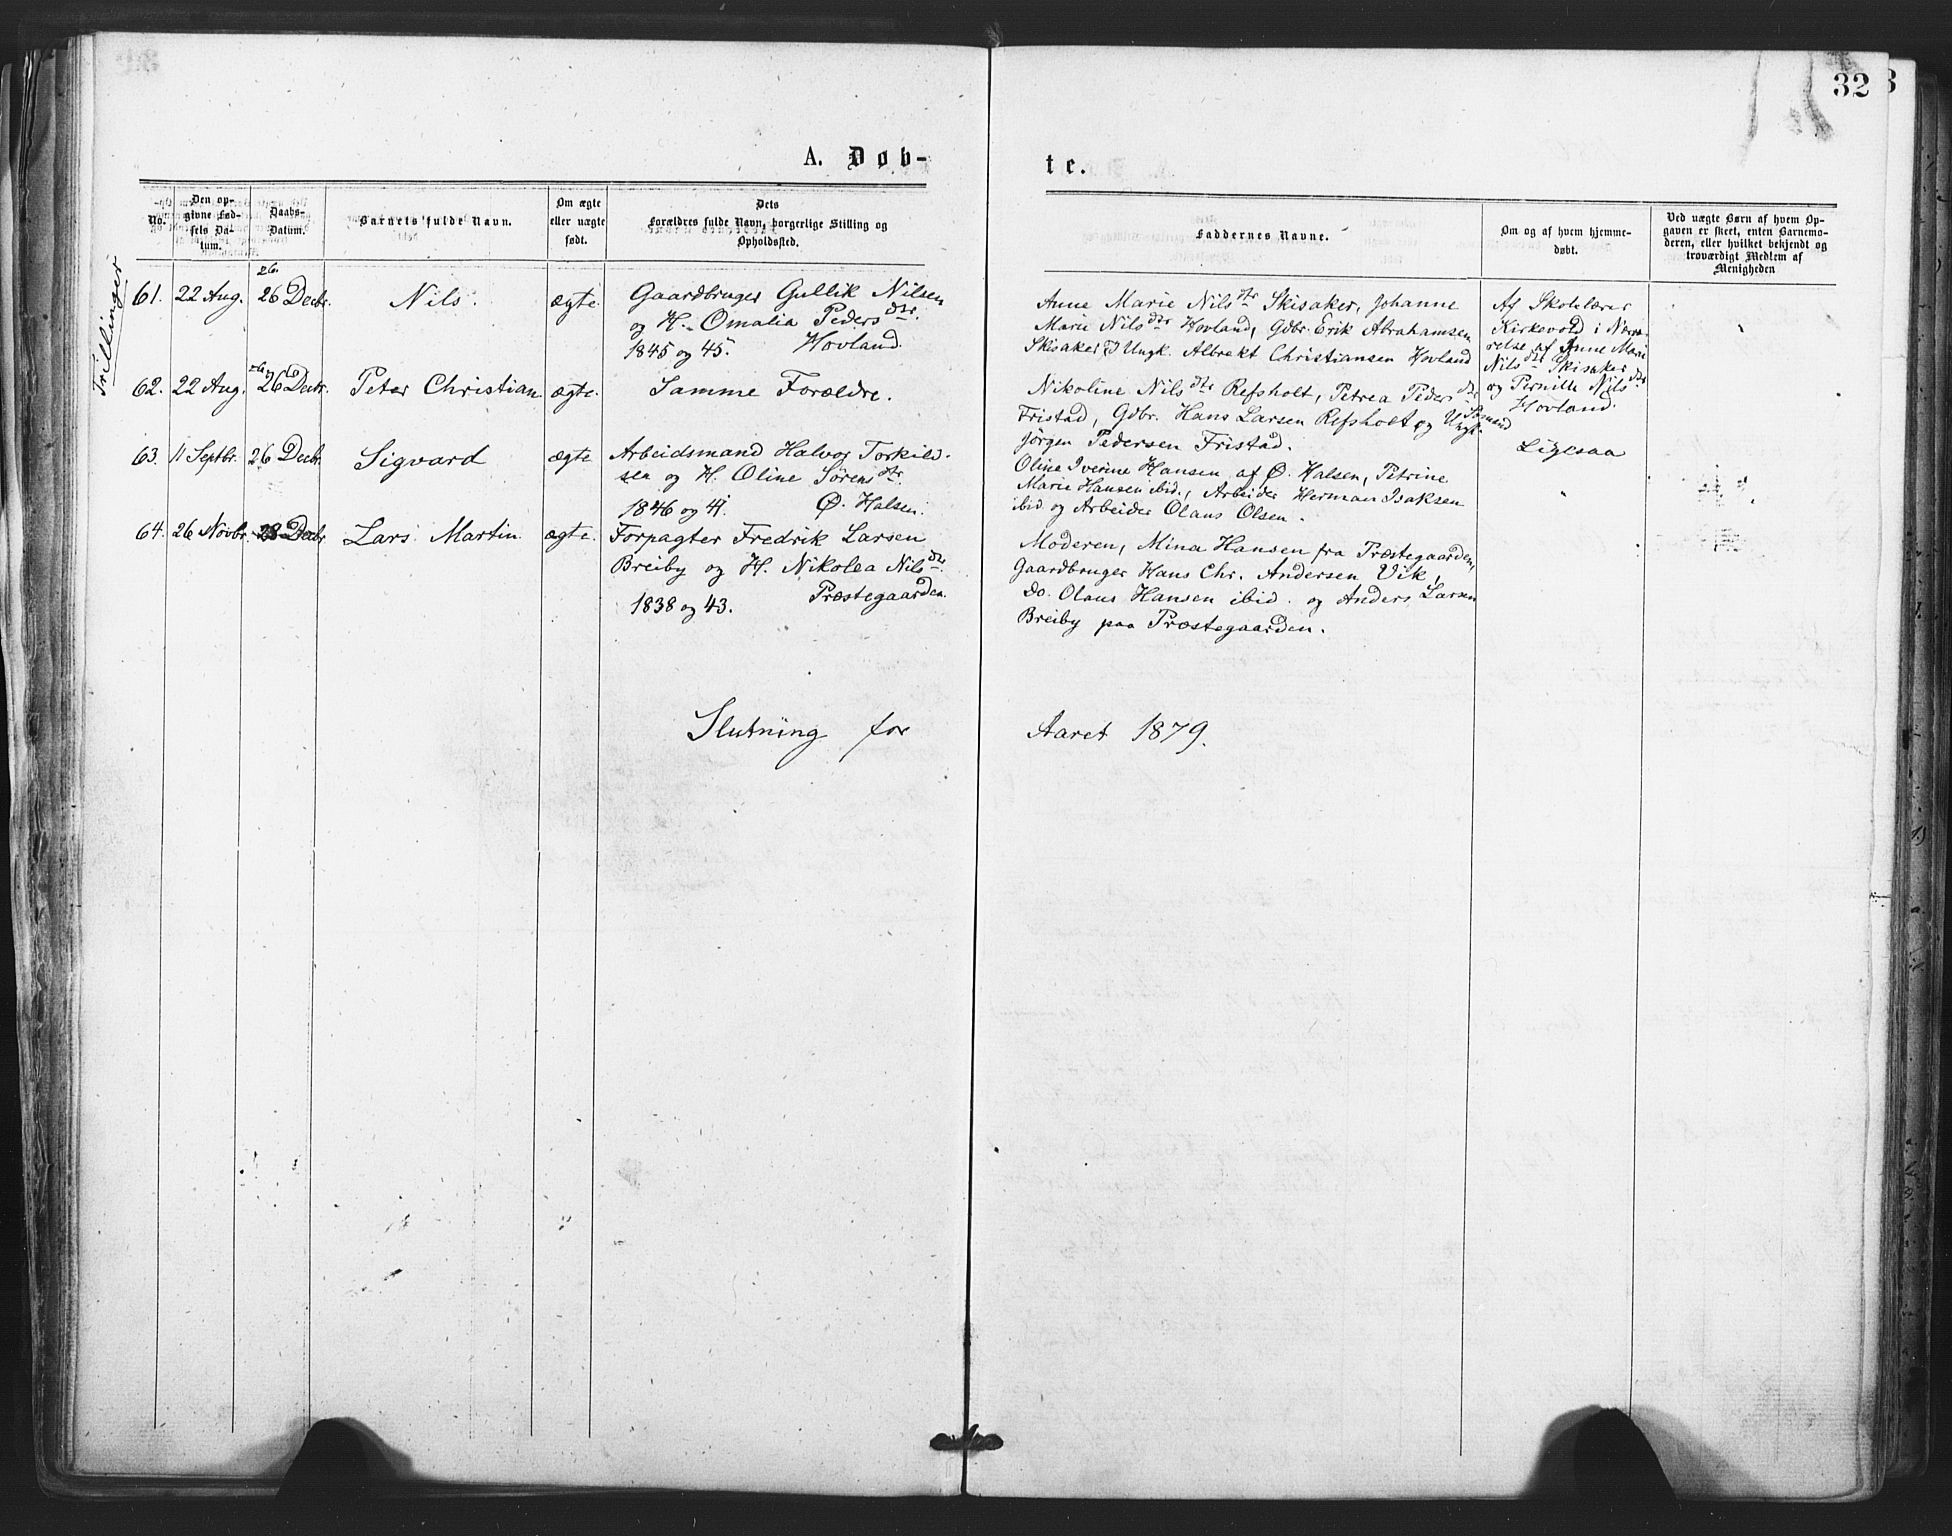 32
A. Døb-
te.
No.
Den op-
givne Fød-
sels Da-
tum.
Daabs-
Datum.
Barnets fulde Navn.
Om ægte
eller uægte
født.
Dets
Forældres fulde Navn, borgerlige Stilling og
Opholdssted.
Faddernes Navne.
Om og af hvem hjemme-
døbt.
Ved uægte Børn af hvem Op-
gaven er skeet, enten Barnemo-
deren, eller hvilket bekjendt og
troværdigt Medlem af
Menigheden
Trillinger
61. 22 Aug. 26 Decbr. Nils. ægte Gaardbruger Gullik Nilsen
og H. Omalia Pedersdtr.
1845 og 45. Hovland.
Anne Marie Nilsdtr Skisaker, Johanne
Marie Nilsdtr Hovland, Gdbr. Erik Abrahamsen
Skisaker & Ungk. Albrekt Christiansen Hovland
Af Skolelærer
Kirkevold i Nærvæ-
relse af Anne Marie
Nilsdtr Skisaker
og Pernille Nilsdtr
Hovland.
62. 22 Aug. 26 Decbr. Peter Christian ægte. Samme Forældre.
Nikoline Nilsdtr Refsholt, Petrea Pedersdtr
Fristad, Gdbr. Hans Larsen Refsholt og Ungk. Sømand
Jørgen Pedersen Fristad.
Ligesaa
63. 11 Septbr. 26 Decbr. Sigvard ægte Arbeidsmand Halvor Torkild-
sen og H. Oline Sørensdtr.
1846 og 41. Ø. Halsen.
Oline Iverine Hansen af Ø. Halsen, Petrine
Marie Hansen ibid., Arbeider Herman Isaksen
ibid og Arbeider Olaus Olsen.
64. 26 Novbr. 28 Decbr Lars Martin ægte. Forpagter Fredrik Larsen
Breiby og H. Nikolea Nilsdtr.
1838 og 43. Præstegaarden.
Moderen, Mina Hansen fra Præstegaarden,
Gaardbruger Hans Chr. Andersen Vik,
Do. Olaus Hansen ibid. og Anders Larsen
Breiby paa Præstegaarden.
Slutning for Aaret 1879.